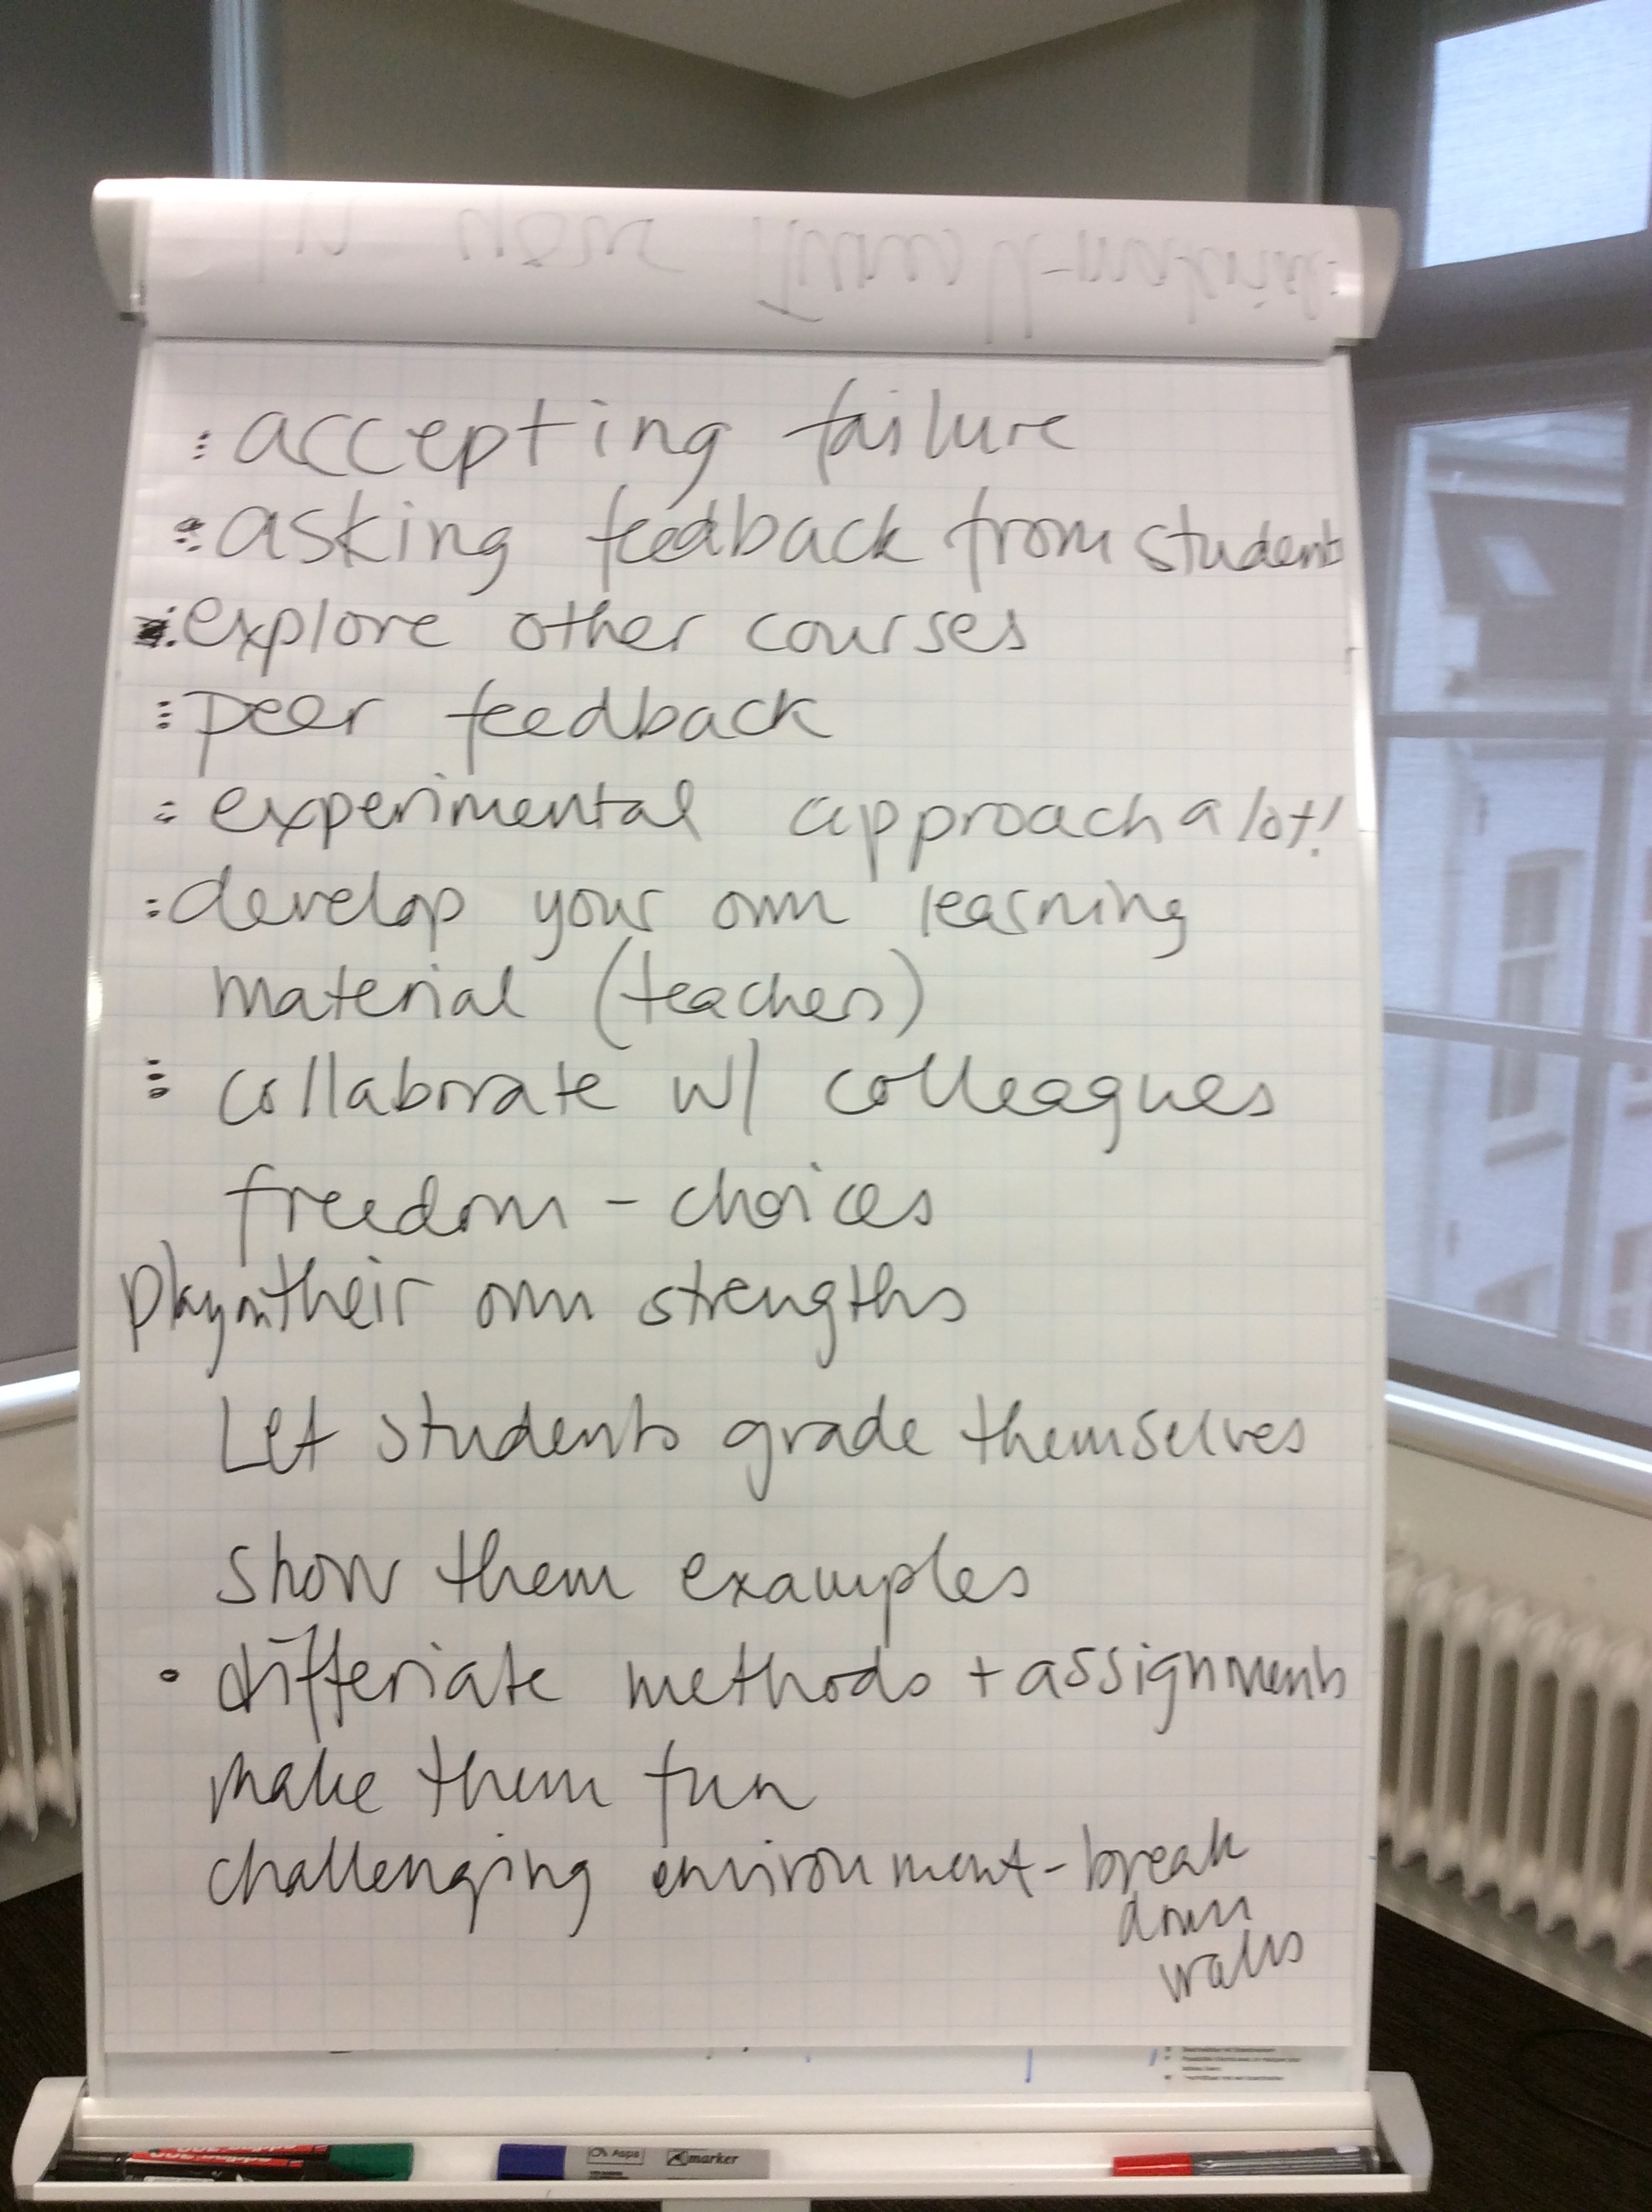 : accepting failure
: asking feedback from students
: explore other courses
: peer feedback
: experimental approach a lot!
: develop your own learning
material (teachers)
: collaborate w/ colleagues
freedom - choices
Play on their own strengths
Let students grade themselves
Show them examples
• differiate methods + assignments
make them fun
challenging environment - break
down
walls
marker